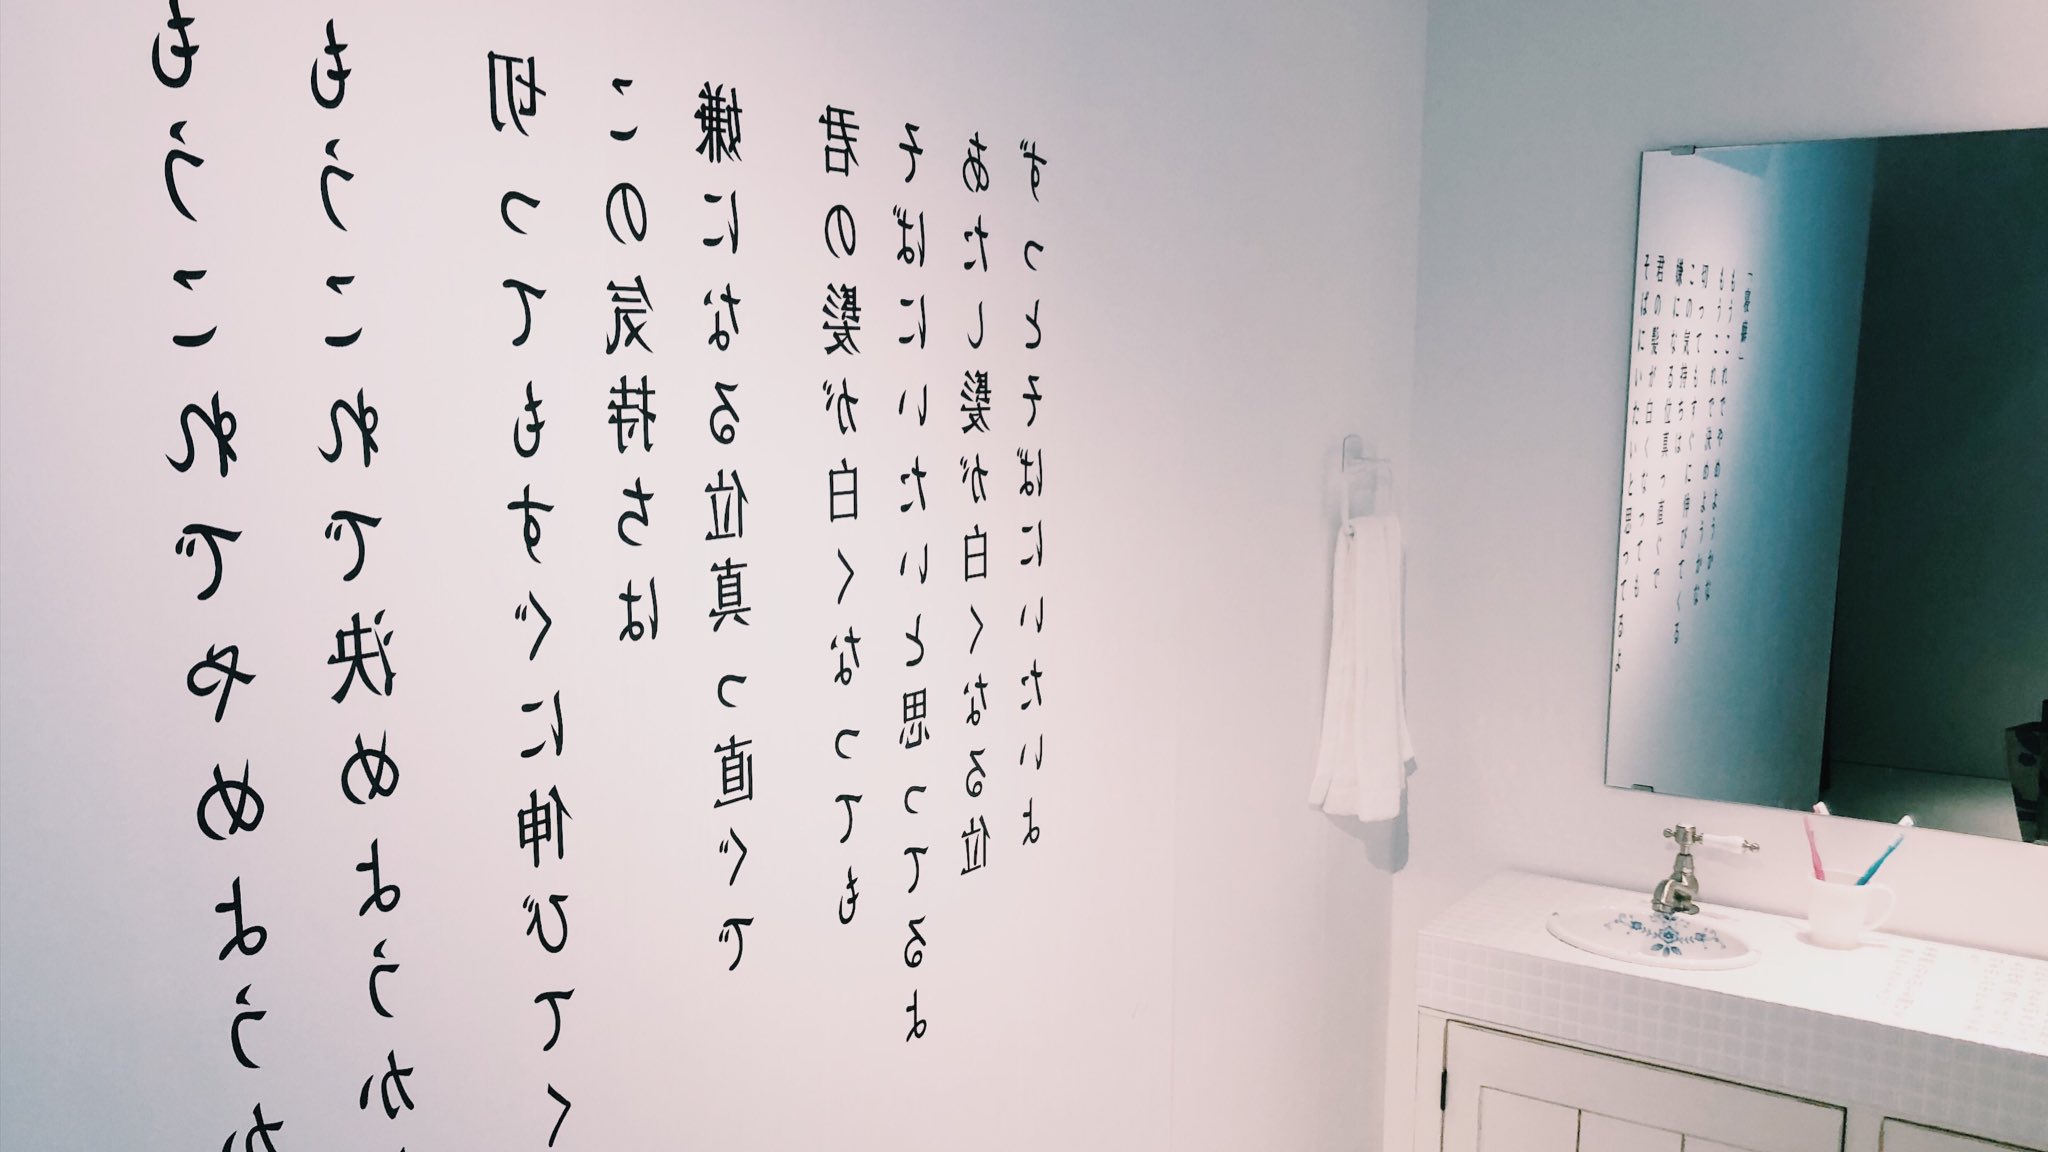 もうこれでやめようか
もうこれで決めようか
切ってもすぐに伸びてく
この気持ちは
嫌になる位真っ直ぐで
君の髪が白くなっても
そばにいたいと思ってるよ
あたし髪が白くなる位
ずっとそばにいたいよ
「寝癖」
もうこれでやめようかな
もうこれで決めようかな
切ってもすぐに伸びてくる
この気持ちは
嫌になる位真っ直ぐで
君の髪が白くなっても
そばにいたいと思ってるよ